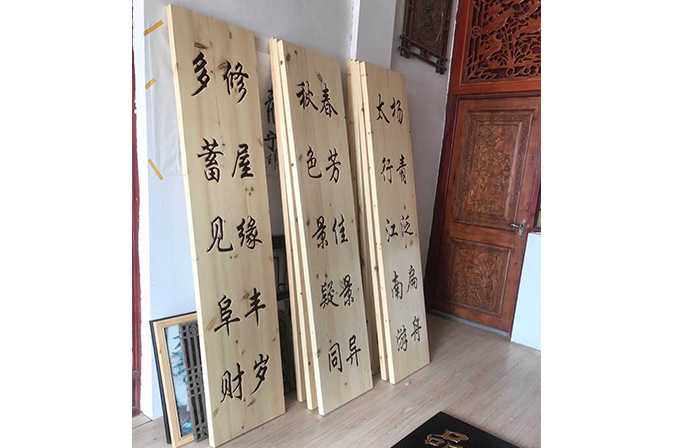 杨青泛扁舟
太行江南游
春芳佳景异
秋色景疑同
修屋缘丰岁
多蓄见阜财